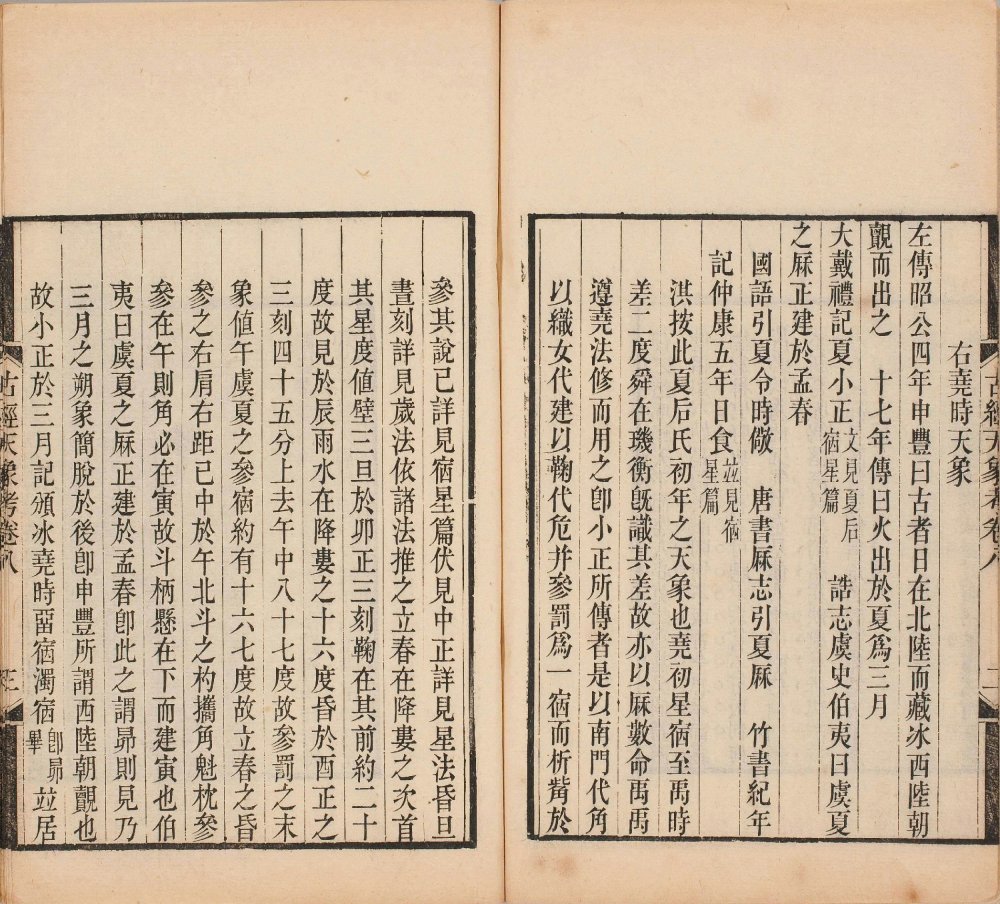 右堯時天象
左傳昭公四年申豐曰古者日在北陸而藏冰西陸朝
覿而出之　十七年傳曰火出於夏爲三月
大戴禮記夏小正文見夏后宿星篇　誥志虞史伯夷曰虞夏
之厤正建於孟春
國語引夏令時儆　唐書厤志引夏厤　竹書紀年
記仲康五年日食竝見宿星篇
洪按此夏后氏初年之天象也堯初星宿至禹時
差二度舜在璣衡旣識其差故亦以厤數命禹禹
遵堯法修而用之卽小正所傳者是以南門代角
以織女代建以鞠代危并參罰爲一宿而析觜於
參其說已詳見宿星篇伏見中正詳見星法昏旦
晝刻詳見歲法依諸法推之立春在降婁之次首
其星度値壁三旦於卯正三刻鞠在其前約二十
度故見於辰雨水在降婁之十六度昏於酉正之
三刻四十五分上去午中八十七度故參罰之末
象値午虞夏之參宿約有十六七度故立春之昏
參之右肩右距已中於午北斗之杓攜角魁枕參
參在午則角必在寅故斗柄懸在下而建寅也伯
夷曰虞夏之厤正建於孟春卽此之謂昴則見乃
三月之朔象簡脫於後卽申豐所謂西陸朝覿也
故小正於三月記頒冰堯時畱宿濁宿卽昴畢竝居
古經天象考卷八
二
古經天象考卷八